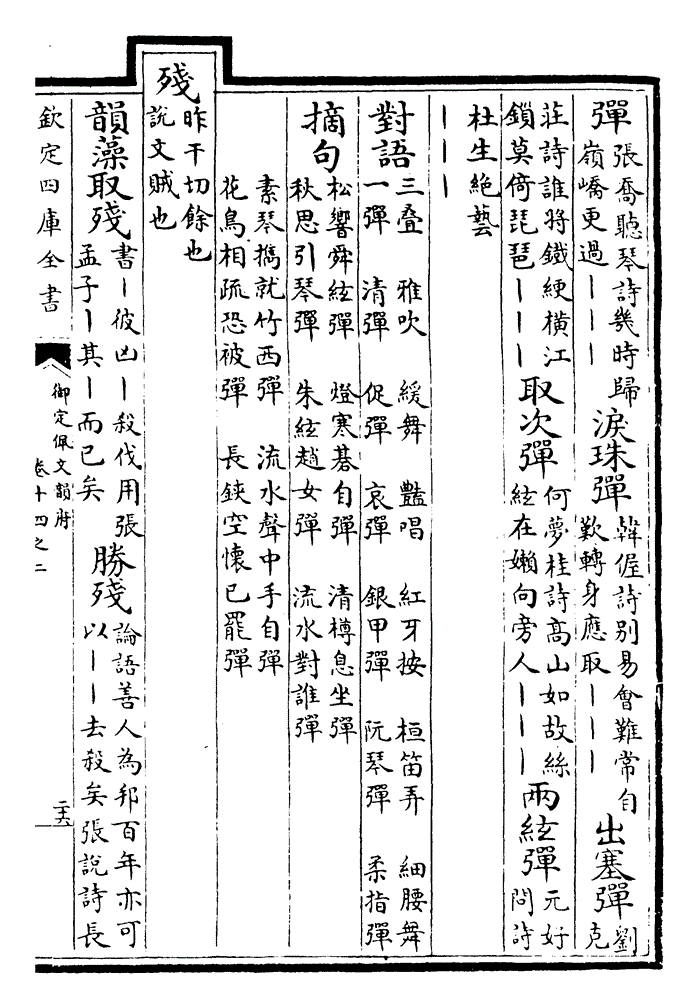 彈張喬聽琴詩幾時歸嶺嶠更過丨丨丨淚珠彈韓偓詩别易會難常自歎轉身應取丨丨丨出塞彈劉克
莊詩誰將鐵綆横江鎖莫倚琵琶丨丨丨取次彈何夢桂詩高山如故絲絃在嬾向旁人丨丨丨兩絃彈元好問詩
杜生絶藝丨丨丨
對語三叠 雅吹 緩舞 豔唱 紅牙按 桓笛弄 細腰舞
一彈 清彈 促彈 哀彈 銀甲彈 阮琴彈 柔指彈
摘句松響舜絃彈 燈寒碁自彈 清樽息坐彈
秋思引琴彈 朱絃趙女彈 流水對誰彈
素琴擕就竹西彈 流水聲中手自彈
花鳥相疏恐被彈 長鋏空懷已罷彈
殘昨干切餘也說文賊也
韻藻取殘書丨彼凶丨殺伐用張孟子丨其丨而已矣勝殘論語善人為邦百年亦可以丨丨去殺矣張說詩長
欽定四庫全書 御定佩文韻府 卷十四之二 二十六